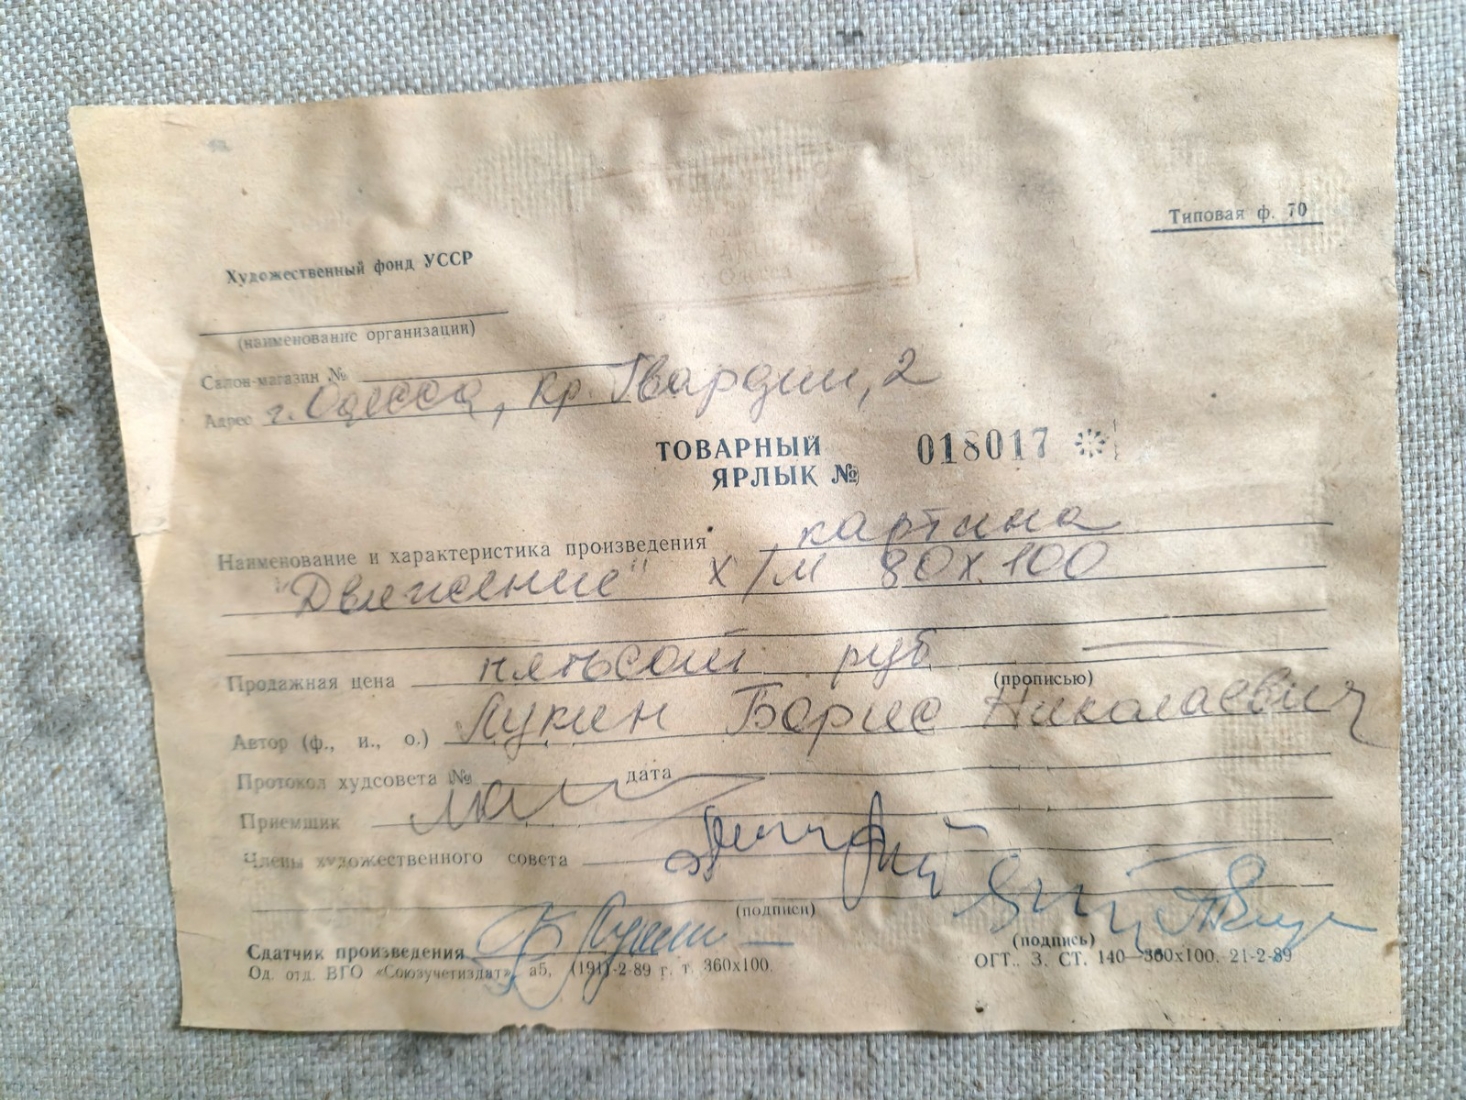 Типовая ф. 70
Художественный фонд УССР
(наименование организации)
Салон-магазин №
Адрес г. Одесса, Кр. Гвардии, 2
ТОВАРНЫЙ
ЯРЛЫК № 018017
Наименование и характеристика произведения картина
"Движение" х/м 80х100
Продажная цена пятьсот руб
(прописью)
Автор (ф., и., о.) Лукин Борис Николаевич
Протокол худсовета № дата
Приемщик
Члены художественного совета
(подписи)
Сдатчик произведения
(подпись)
Од. отд. ВГО «Союзучетиздат» аб, (191)-2-89 г. т. 360х100.
ОГТ. З. СТ. 140—360х100. 21-2-89